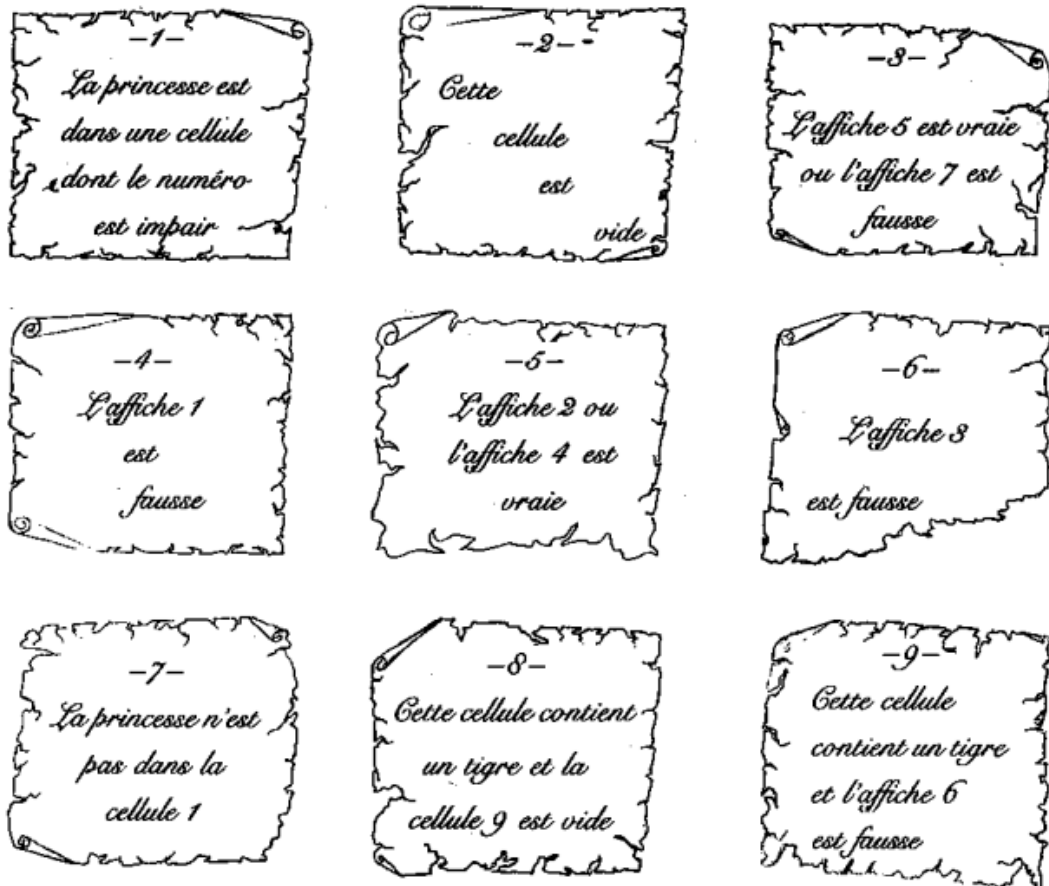 -1-
La princesse est
dans une cellule
dont le numéro
est impair
-2-
Cette
cellule
est
vide
-3-
L'affiche 5 est vraie
ou l'affiche 7 est
fausse
-4-
L'affiche 1
est
fausse
-5-
L'affiche 2 ou
l'affiche 4 est
vraie
-6-
L'affiche 3
est fausse
-7-
La princesse n'est
pas dans la
cellule 1
-8-
Cette cellule contient
un tigre et la
cellule 9 est vide
-9-
Cette cellule
contient un tigre
et l'affiche 6
est fausse